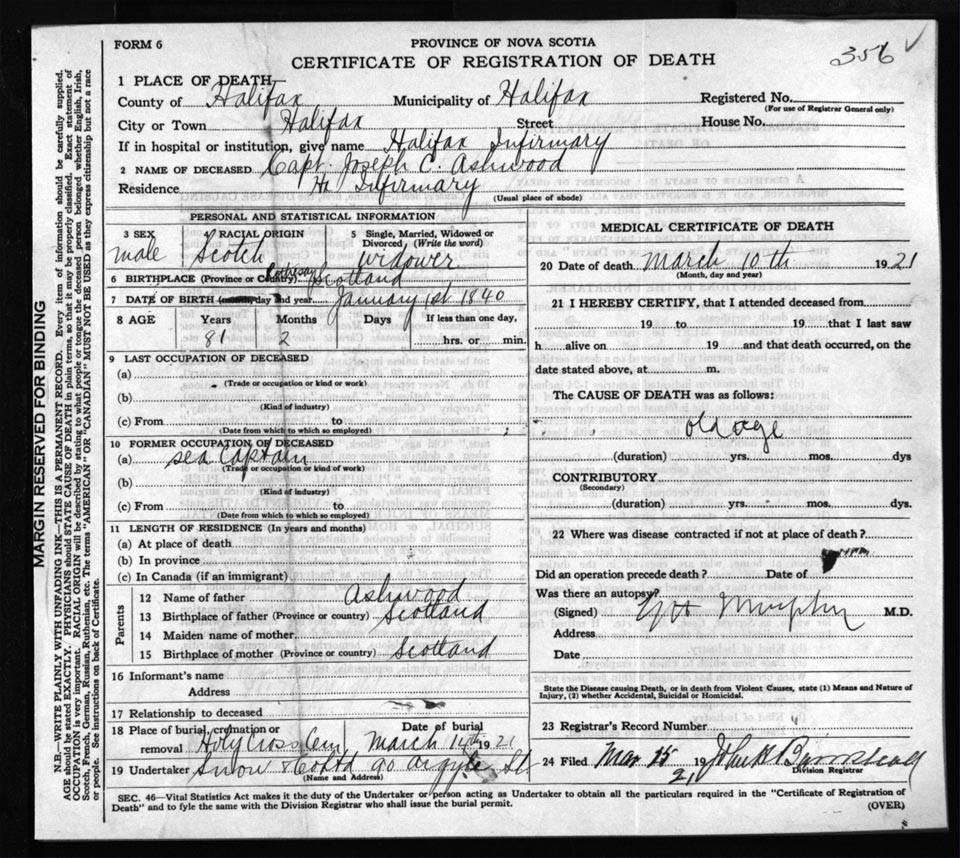 FORM 6
PROVINCE OF NOVA SCOTIA
CERTIFICATE OF REGISTRATION OF DEATH
356
1 PLACE OF DEATH—
County of Halifax Municipality of Halifax Registered No.
(For use of Registrar General only)
City or Town Halifax Street House No.
If in hospital or institution, give name Halifax Infirmary
2 NAME OF DECEASED Capt. Joseph C. Ashwood
Residence Hx Infirmary
(Usual place of abode)
PERSONAL AND STATISTICAL INFORMATION
3 SEX 4 RACIAL ORIGIN 5 Single, Married, Widowed or Divorced (Write the word)
male Scotch widower
6 BIRTHPLACE (Province or Country) Rothesay Scotland
7 DATE OF BIRTH (month, day and year January 1st 1840
8 AGE Years Months Days If less than one day,
81 2 hrs. or min.
9 LAST OCCUPATION OF DECEASED
(a)
(Trade or occupation or kind or work)
(b)
(Kind of industry)
(c) From to
(Date from which to which so employed)
10 FORMER OCCUPATION OF DECEASED
(a) sea Captain
(Trade or occupation or kind of work)
(b)
(Kind of industry)
(c) From to
(Date from which to which so employed)
11 LENGTH OF RESIDENCE (In years and months)
(a) At place of death
(b) In province
(c) In Canada (if an immigrant)
Parents
12 Name of father Ashwood
13 Birthplace of father (Province or country) Scotland
14 Maiden name of mother
15 Birthplace of mother (Province or country) Scotland
16 Informant's name
Address
17 Relationship to deceased
18 Place of burial, cremation or removal Holy Cross Cem Date of burial March 14th 1921
19 Undertaker Snow & Co Ltd 90 Argyle St
(Name and Address)
MEDICAL CERTIFICATE OF DEATH
20 Date of death March 10th 1921
(Month, day and year)
21 I HEREBY CERTIFY, that I attended deceased from
19 to 19 that I last saw
h alive on 19 and that death occurred, on the
date stated above, at m.
The CAUSE OF DEATH was as follows:
old age
(duration) yrs. mos. dys
CONTRIBUTORY
(Secondary)
(duration) yrs. mos. dys.
22 Where was disease contracted if not at place of death?
Did an operation precede death? Date of
Was there an autopsy?
(Signed) Murphy M.D.
Address
Date
State the Disease causing Death, or in death from Violent Causes, state (1) Means and Nature of
Injury, (2) whether Accidental, Suicidal or Homicidal.
23 Registrar's Record Number
24 Filed Mar 15 1921
Division Registrar
SEC. 46—Vital Statistics Act makes it the duty of the Undertaker or person acting as Undertaker to obtain all the particulars required in the "Certificate of Registration of
Death" and to fyle the same with the Division Registrar who shall issue the burial permit.
(OVER)
MARGIN RESERVED FOR BINDING
N.B.—WRITE PLAINLY WITH UNFADING INK—THIS IS A PERMANENT RECORD. Every item of information should be carefully supplied.
AGE should be stated EXACTLY. PHYSICIANS should STATE CAUSE OF DEATH in plain terms, so that it may be properly classified. Exact statement of
OCCUPATION is very important. RACIAL ORIGIN will be described by stating to what people or tongue the deceased person belonged whether English, Irish,
Scotch, French, German, Russian, Ruthenian, etc. The terms "AMERICAN" OR "CANADIAN" MUST NOT BE USED as they express citizenship but not a race
or people. See instructions on back of Certificate.